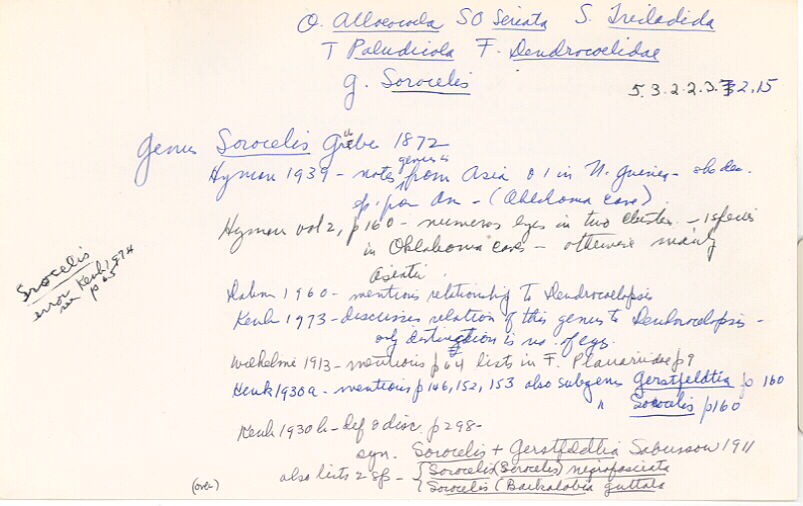 O. Alloeocoela SO Seriata S. Tricladida
T Paludicola F. Dendrocoelidae
g. Sorocelis
5.3.2.2.3.32.15
Genus Sorocelis Grube 1872
Hyman 1939 - notes genus is from Asia & 1 in N. Guinea - she des.
sp. from Am - (Oklahoma cave)
Hyman vol 2, p 160 - numerous eyes in two clusters - 1 species
in Oklahoma caves - otherwise mainly
Asiatic.
Dahm 1960 - mentions relationship to Dendrocoelopsis
Kenk 1973 - discusses relation of this genus to Dendrocoelopsis -
only distinction is no. of eyes.
Wilhelmi 1913 - mentions p 64 lists in F. Planariidae p 9
Kenk 1930a - mentions p 146, 152, 153 also subgenus Gerstfeldtia p 160
" Sorocelis p 160
Kenk 1930b - def & disc. p 298 -
syn. Sorocelis + Gerstfeldtia Sabussow 1911
also lists 2 sp - { Sorocelis (Sorocelis) nigrofasciata
{ Sorocelis (Baikalobia guttata
(over)
Srocelis
error Kenk 1974
see p 65